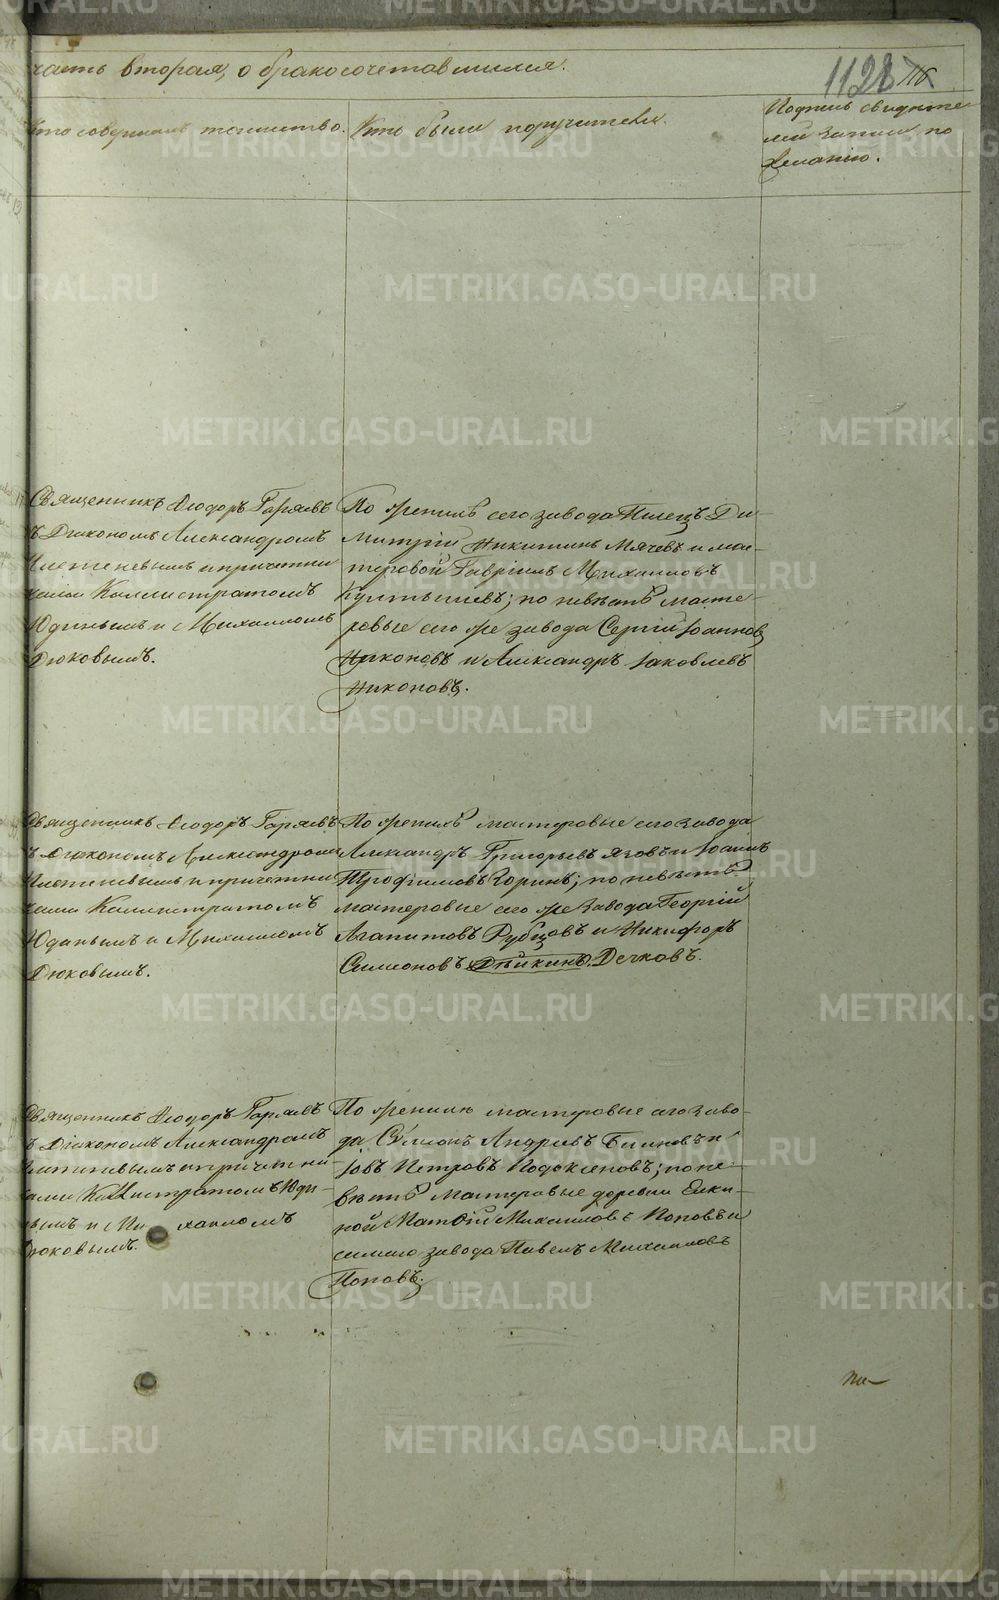 часть вторая, о бракосочетавшихся.
1128
Кто совершалъ таинство.
Кто были поручители.
Подпись свидете
лей записи по
желанію.
Священникъ Ѳеодоръ Гаряевъ
съ Діакономъ Александромъ
и причетни
ками Каллистратомъ
Юдинымъ и Михаиломъ
Дюковымъ.
По женихѣ сего завода Ди-
митрій Никитинъ Мячевъ и мас-
теровой Гавріилъ Михаиловъ
Култышевъ; по невѣстѣ масте-
ровые сего же завода Сергій Іоанновъ
Никоновъ и Александръ Іаковлевъ
Никоновъ.
Священникъ Ѳеодоръ Гаряевъ
съ Діакономъ Александромъ
и причетни
ками Каллистратомъ
Юдинымъ и Михаиломъ
Дюковымъ.
По женихѣ мастеровые сего завода
Александръ Григорьевъ Яговъ и Іоаннъ
Трофимовъ Горинъ; по невѣстѣ
мастеровые сего же завода Георгій
Агапитовъ Рубцовъ и Никифоръ
Симеоновъ Дечковъ.
Священникъ Ѳеодоръ Гаряевъ
съ Діакономъ Александромъ
и причетни
ками Каллистратомъ Юди-
нымъ и Михаиломъ
Дюковымъ.
По женихѣ мастеровые сего заво-
да Симеонъ Андреевъ и
Іовъ Петровъ Подоксеновъ; по не-
вѣстѣ мастеровые деревни
Матѳій Михаиловъ Поповъ и
самаго завода Павелъ Михаиловъ
Поповъ.
METRIKI.GASO-URAL.RU